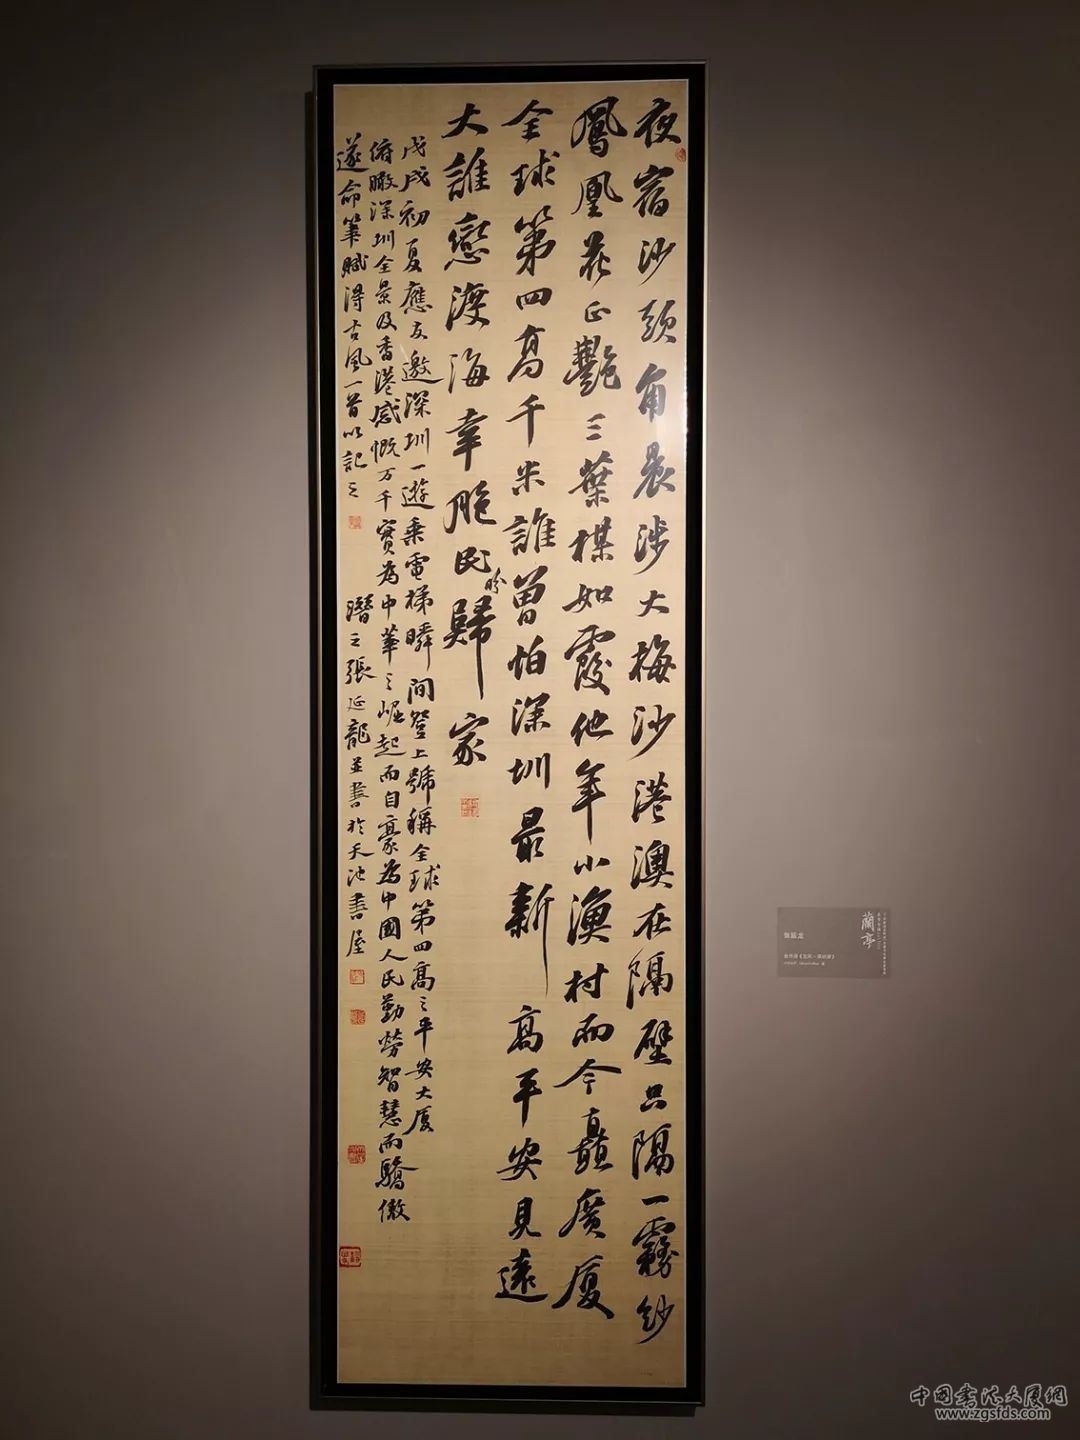 夜宿沙頭角晨涉大梅沙港澳在隔壁只隔一霧紗
鳳凰花正艷三葉楳如霞他年小漁村而今矗廣厦
全球第四高千米誰曾怕深圳最新高平安見遠
大誰戀渡海幸胞民歸家
盼
戊戌初夏應友邀深圳一遊乘電梯瞬间登上號稱全球第四高之平安大厦
俯瞰深圳全景及香港感慨万千實為中華之崛起而自豪為中國人民勤勞智慧而驕傲
遂命筆賦得古風一首以記之
瞃之張延龍並書於天池書屋
張延龙
蘭亭
中国書法大厦網
www.zgsfds.com